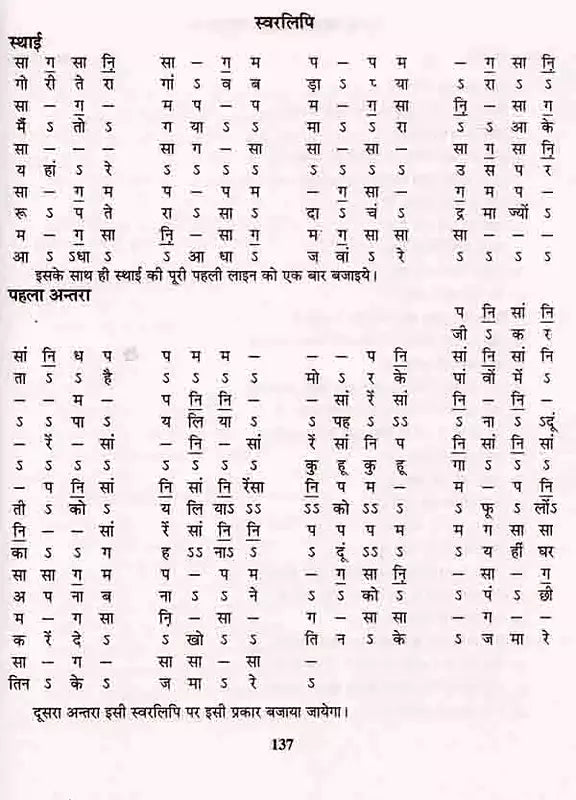 स्वरलिपि
स्थाई
सा ग॒ सा नि॒ सा – ग॒ म प – प म – ग॒ सा नि॒
गो री ते रा गां ऽ व ब ड़ा ऽ प्या ऽ रा ऽ ऽ
सा – ग॒ – म प – प म – ग॒ सा नि॒ – सा ग॒
मैं ऽ तो ऽ ग या ऽ ऽ मा ऽ ऽ रा ऽ ऽ आ के
सा – – – सा ग – सा सा – सा – सा ग॒ सा नि॒
य हां ऽ रे ऽ ऽ ऽ ऽ ऽ ऽ ऽ ऽ उ स प र
सा – ग॒ म प – प म – ग॒ सा – ग॒ म प –
रू ऽ प ते रा ऽ सा ऽ दा ऽ चं ऽ द्र मा ज्यों ऽ
म – ग॒ सा नि॒ – सा ग॒ म ग॒ सा सा सा – – –
आ ऽ ऽधा ऽ ऽ आ धा ऽ ज वां ऽ रे ऽ ऽ ऽ ऽ
इसके साथ ही स्थाई की पूरी पहली लाइन को एक बार बजाइये।
पहला अन्तरा
प नि॒ सां नि॒
जी ऽ क र
सां नि॒ ध प प म म – – – प नि॒ सां नि॒ सां नि
ता ऽ ऽ है ऽ ऽ ऽ ऽ मो ऽ र के पां वों में ऽ
– – म – प नि॒ नि॒ – – सां रें सां नि॒ – नि॒ –
ऽ ऽ पा ऽ य लि या ऽ ऽ पह ऽ ऽऽ ऽ ना ऽ ऽदूं
– रें – सां – नि॒ – सां रें सां नि प नि॒ सां नि॒ सां
ऽ ऽ ऽ ऽ ऽ ऽ ऽ ऽ कु हू कु हू गा ऽ ऽ ऽ
– प नि॒ सां नि॒ सां नि॒ रेंसा नि॒ प म – म – प नि॒
ती ऽ को ऽ य लि याऽ ऽऽ ऽऽ को ऽऽ ऽ ऽ फू ऽ लोंऽ
नि॒ – – सां रें सां नि॒ नि॒ प प प म म ग सा सा
का ऽ ऽ ग ह ऽऽ नाऽ ऽ ऽ दूं ऽऽ ऽ ऽ य हीं घर
सा सा ग॒ म प – प म – ग॒ सा नि॒ – सा – ग॒
अ प ना ब ना ऽ ऽ ने ऽ ऽ को ऽ ऽ पं ऽ छी
म – ग॒ सा नि॒ – सा – ग – सा सा – ग – –
क रें दे ऽ ऽ खो ऽ ऽ ति न ऽ के ऽ ज मा रे
सा – ग – सा सा – सा –
तिन ऽ के ऽ ज मा ऽ रे ऽ
दूसरा अन्तरा इसी स्वरलिपि पर इसी प्रकार बजाया जायेगा।
137